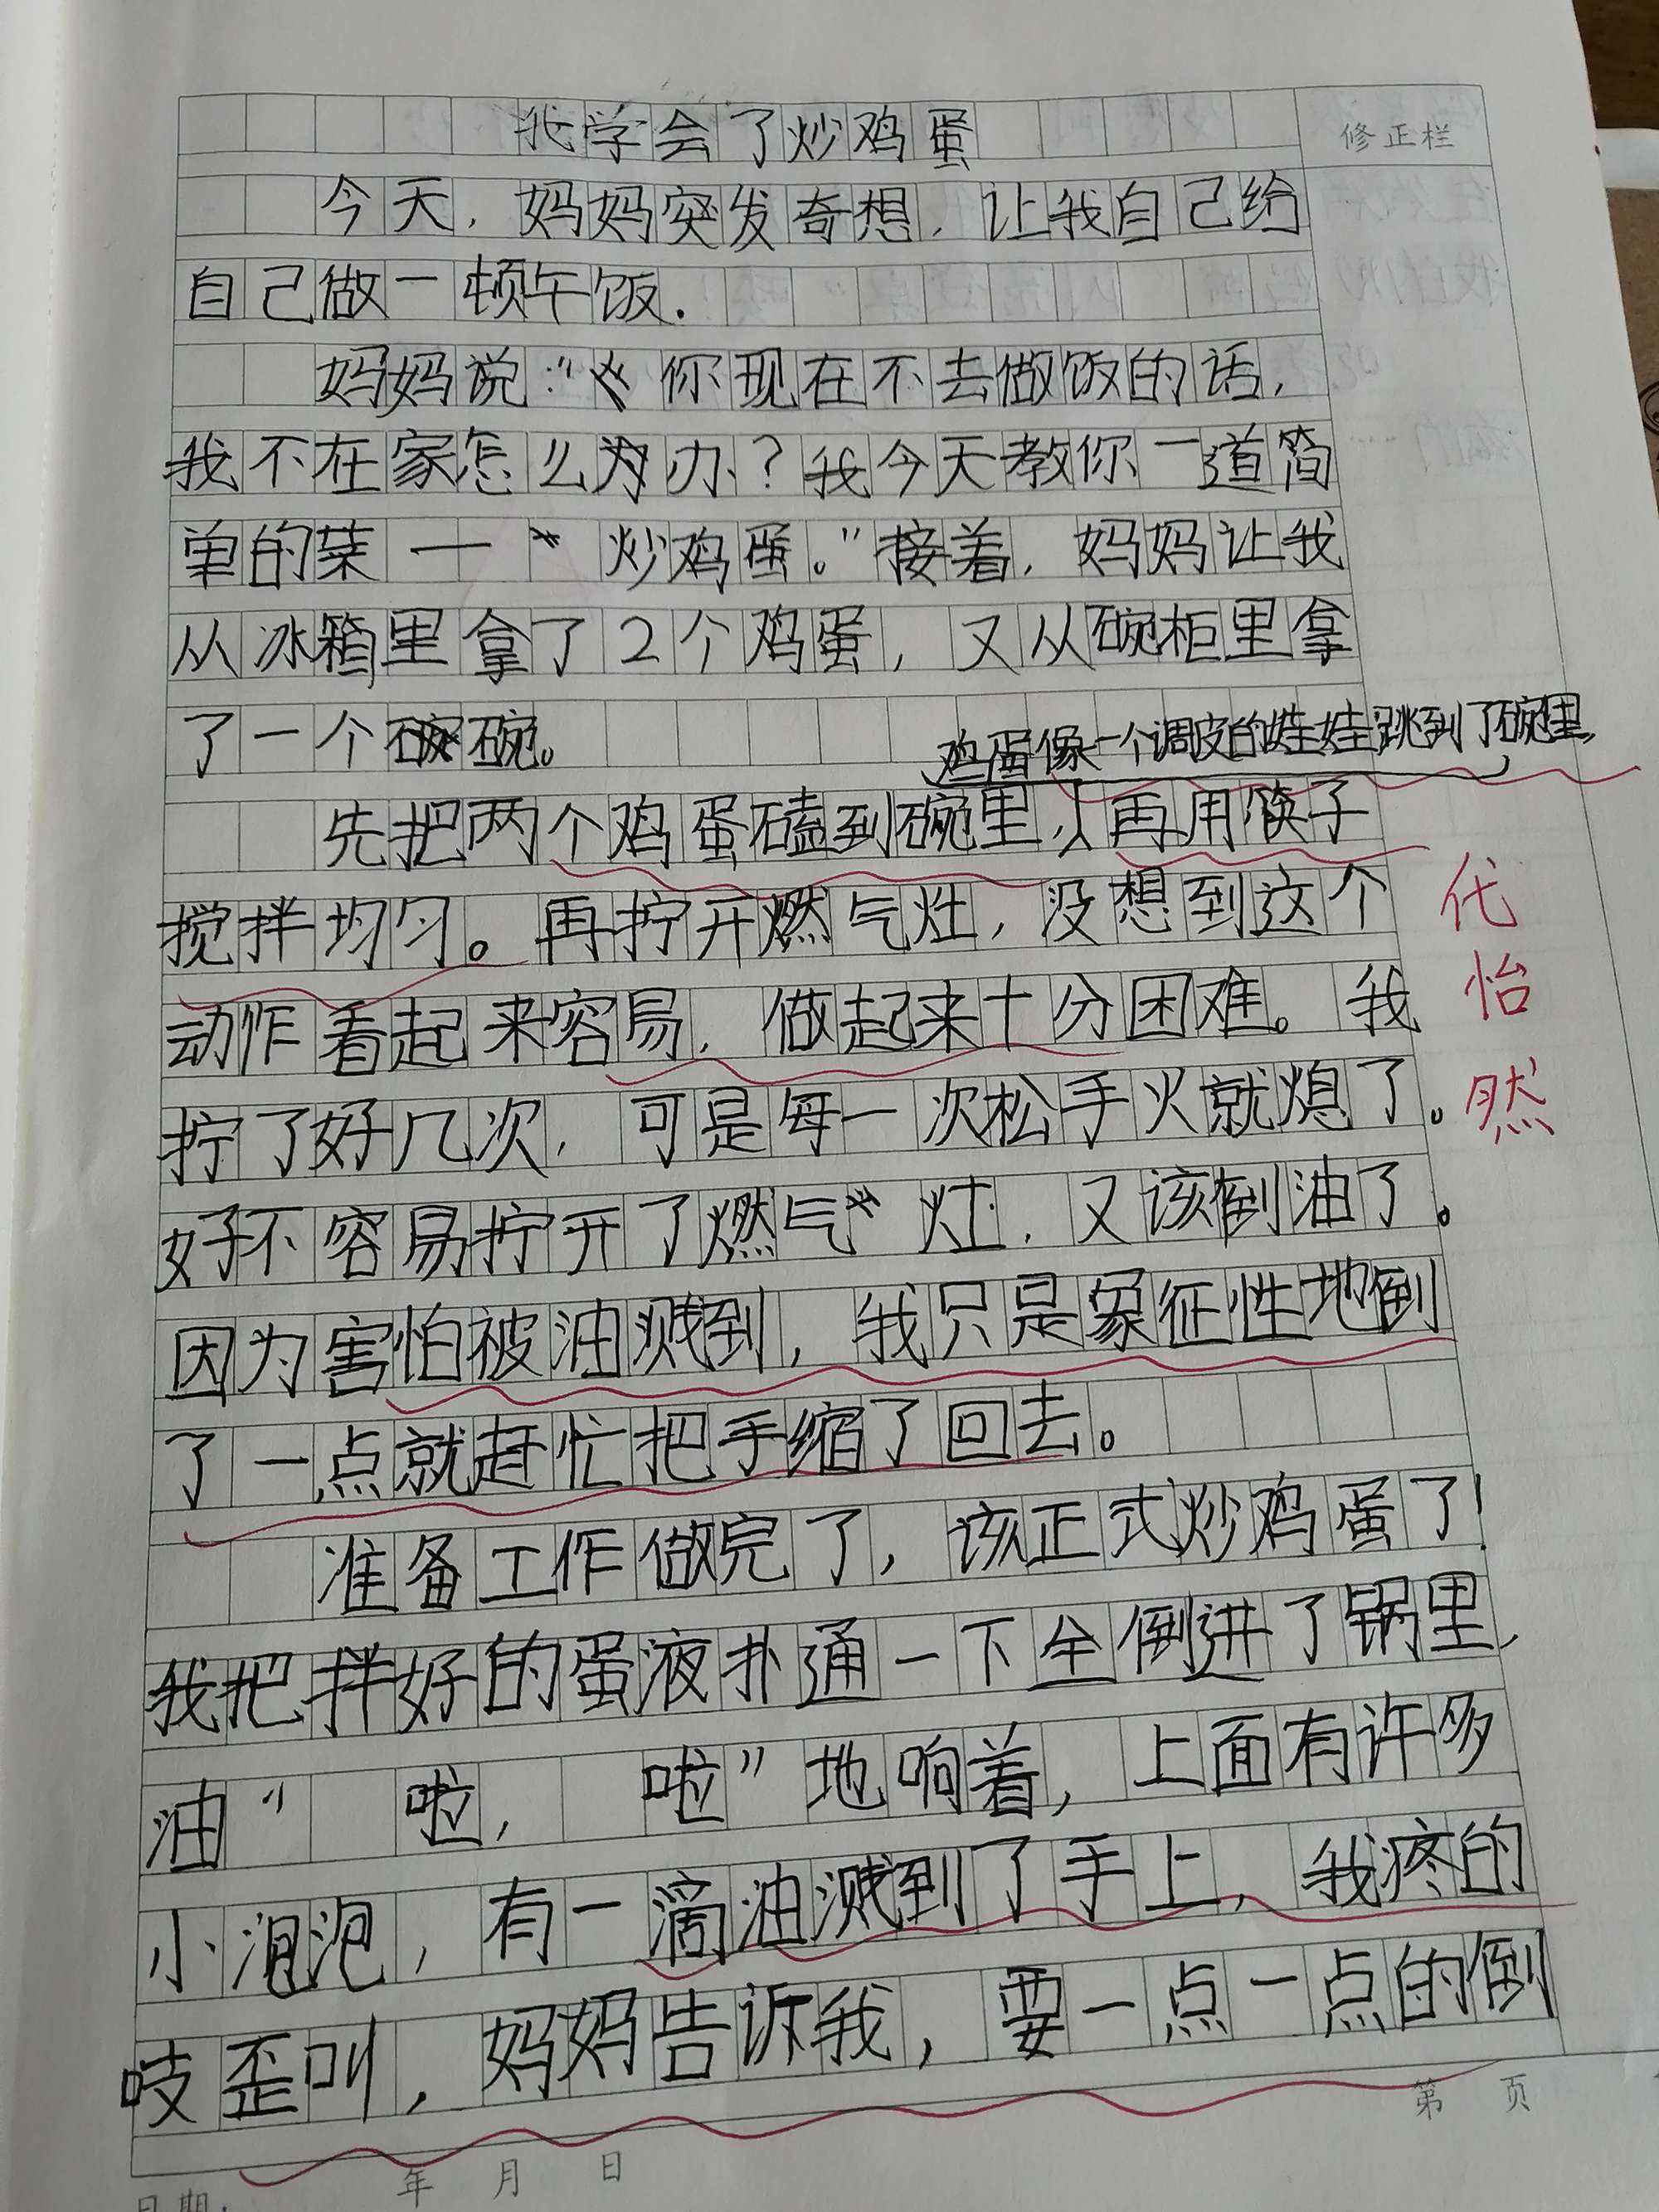 我学会了炒鸡蛋
修正栏
今天，妈妈突发奇想，让我自己给
自己做一顿午饭．
妈妈说："你现在不去做饭的话，
我不在家怎么办？我今天教你一道简
单的菜——炒鸡蛋。"接着，妈妈让我
从冰箱里拿了2个鸡蛋，又从碗柜里拿
了一个碗。
鸡蛋像一个调皮的娃娃跳到了碗里，
先把两个鸡蛋磕到碗里，再用筷子
搅拌均匀。再拧开燃气灶，没想到这个
动作看起来容易，做起来十分困难。我
拧了好几次，可是每一次松手火就熄了。
好不容易拧开了燃气灶，又该倒油了。
因为害怕被油溅到，我只是象征性地倒
了一点就赶忙把手缩了回去。
准备工作做完了，该正式炒鸡蛋了！
我把拌好的蛋液扑通一下全倒进了锅里，
油"啦，啦"地响着，上面有许多
小泡，有一滴油溅到了手上，我疼的
吱歪叫，妈妈告诉我，要一点一点的倒
代怡然
第 页
日期： 年 月 日